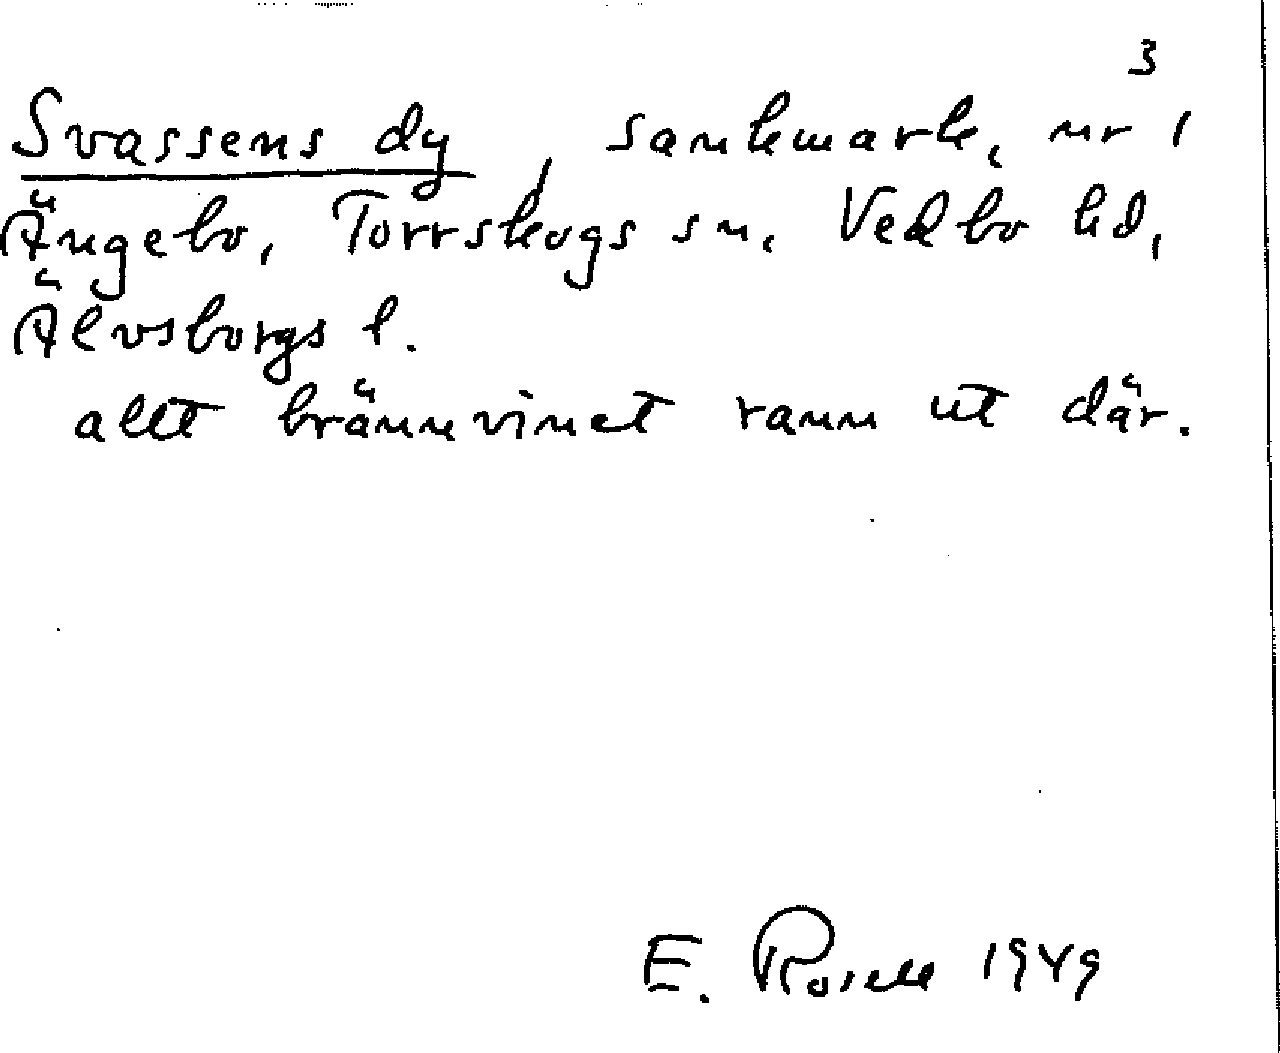 3
Svassens dy, sankmark, nr 1
Ängebo, Torrskogs sn, Vedbo hd,
Älvsborgs l.
allt brännvinet rann ut där.
E. Rosell 1949